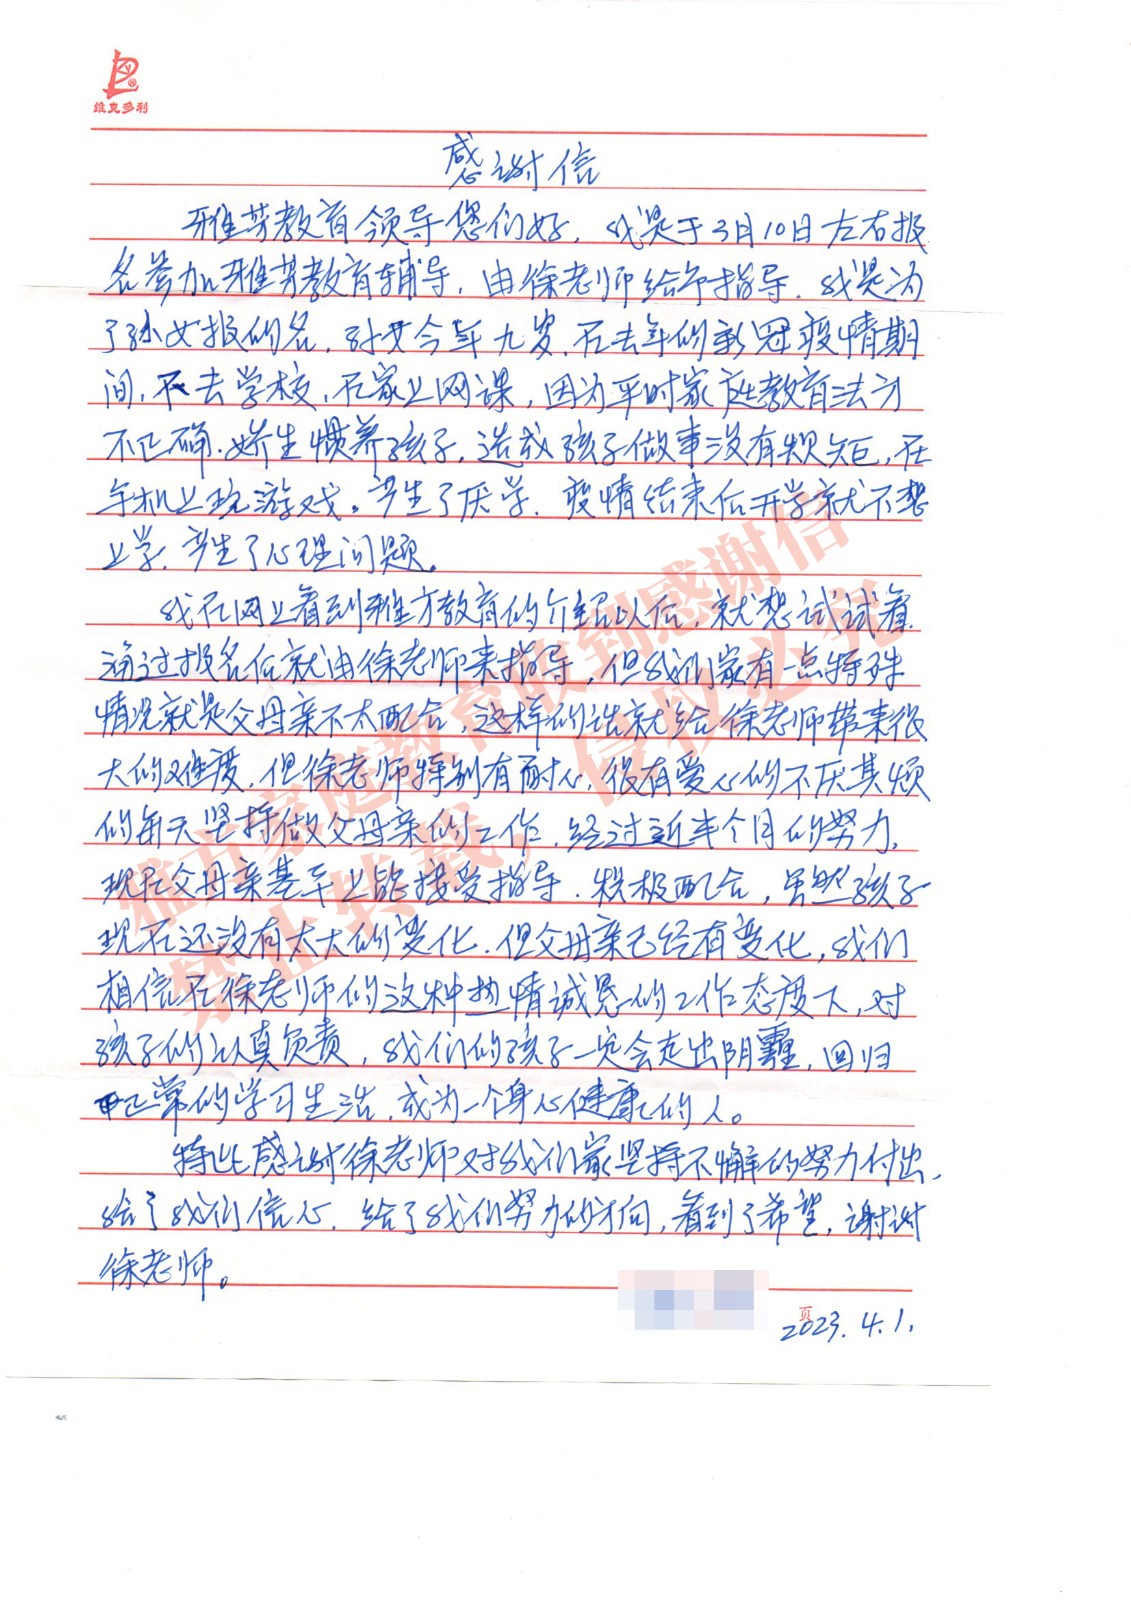 维克多利
感谢信
雅芳教育领导您们好，我是于3月10日左右报
名参加雅芳教育辅导，由徐老师给予指导．我是为
了孙女报的名，孙女今年九岁，在去年的新冠疫情期
间，不去学校，在家上网课，因为平时家庭教育法方
不正确．娇生惯养孩子，造成孩子做事没有规矩，在
手机上玩游戏。产生了厌学．疫情结束后开学就不想
上学，产生了心理问题。
我在网上看到雅方教育的介绍以后，就想试试看．
通过报名后就由徐老师来指导，但我们家有一点特殊
情况就是父母亲不太配合，这样的话就给徐老师带来很
大的难度．但徐老师特别有耐心，很有爱心的不厌其烦
的每天坚持做父母亲的工作．经过近半个月的努力，
现在父母亲基本上能接受指导．积极配合，虽然孩子
现在还没有太大的变化．但父母亲已经有变化，我们
相信在徐老师的这种热情诚恳的工作态度下，对
孩子的认真负责，我们的孩子一定会走出阴霾，回归
正常的学习生活，成为一个身心健康的人。
特此感谢徐老师对我们家坚持不懈的努力付出，
给了我们信心．给了我们努力的方向，看到了希望，谢谢
徐老师。
页
2023.4.1.
雅方家庭教育收到感谢信
禁止转载，侵权必究